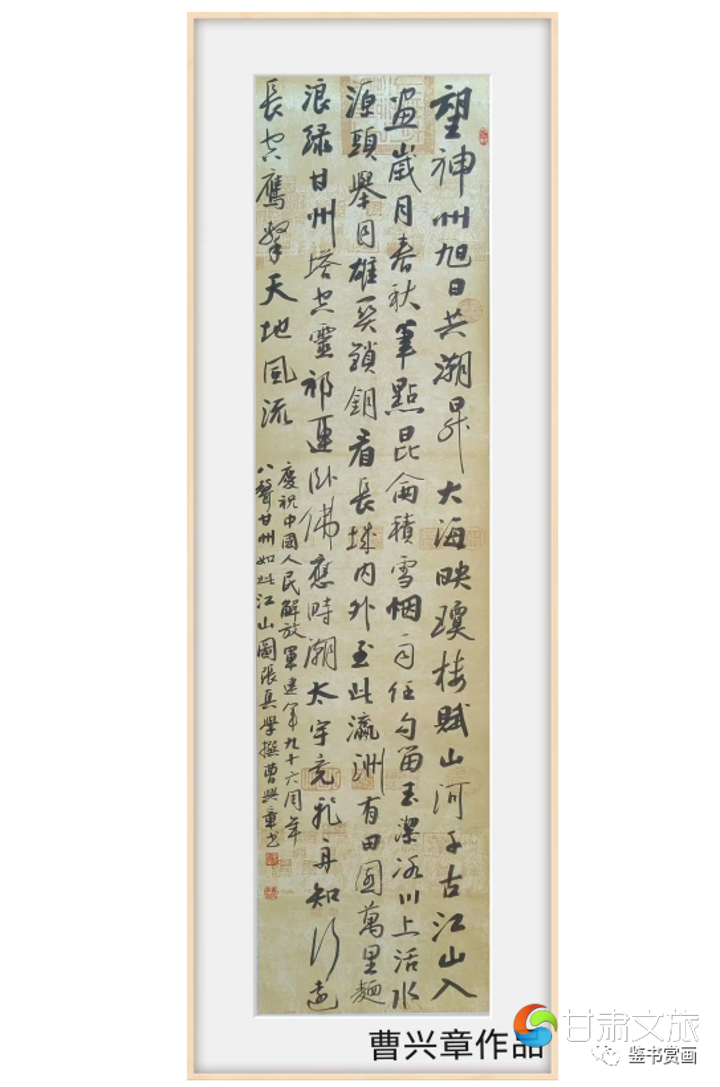 望神州旭日共潮昇大海映瓊楼賦山河千古江山入
畫歲月春秋筆點昆侖積雪烟任勾留玉潔冰川上活水
源頭舉目雄關鎖鑰看長城内外至此瀛洲有田園萬里麵
浪緑甘州塔空靈祁連卧佛應時潮太宇竞飛舟知行遠
長空鷹擊天地風流
慶祝中國人民解放軍建軍九十六周年
八聲甘州如此江山圖張學撰曹興章书
曹兴章作品
甘肃文旅
鉴书赏画